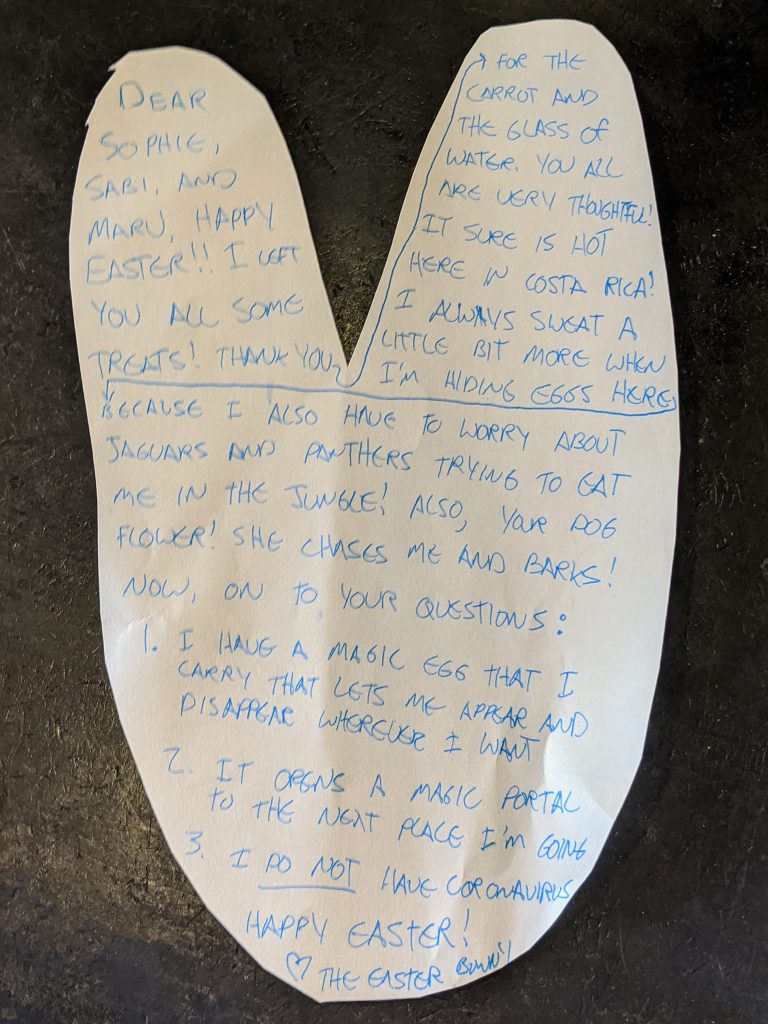 DEAR
SOPHIE,
SABI, AND
MARU, HAPPY
EASTER!! I LEFT
YOU ALL SOME
TREATS! THANK YOU
FOR THE
CARROT AND
THE GLASS OF
WATER. YOU ALL
ARE VERY THOUGHTFUL!
IT SURE IS HOT
HERE IN COSTA RICA!
I ALWAYS SWEAT A
LITTLE BIT MORE WHEN
I'M HIDING EGGS HERE
BECAUSE I ALSO HAVE TO WORRY ABOUT
JAGUARS AND PANTHERS TRYING TO EAT
ME IN THE JUNGLE! ALSO, YOUR DOG
FLOWER! SHE CHASES ME AND BARKS!
NOW, ON TO YOUR QUESTIONS:
1. I HAVE A MAGIC EGG THAT I
CARRY THAT LETS ME APPEAR AND
DISAPPEAR WHEREVER I WANT
2. IT OPENS A MAGIC PORTAL
TO THE NEXT PLACE I'M GOING
3. I DO NOT HAVE CORONAVIRUS
HAPPY EASTER!
♡ THE EASTER BUNNY